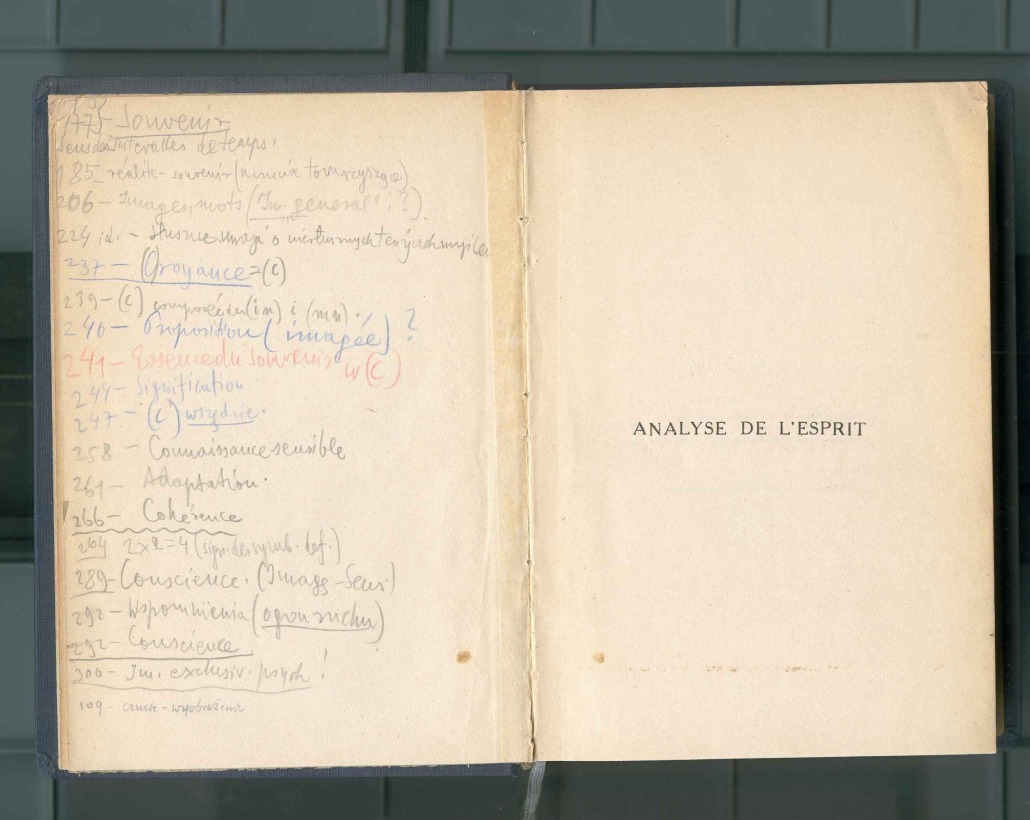 177 - Souvenir
Sens des intervalles de temps.
185 - réalité - souvenir (uczucia towarzyszące)
206 - Images, mots ("Im. general"!?)
224 id. - słuszne uwagi o
237 - Croyance = (C)
239 - (C) composée du (im) i (mn).
240 - Proposition (imagée)?
241 - Essence du souvenir w (C)
244 - Signification
247 - (C) wszędzie.
258 - Connaissance sensible
261 - Adaptation.
266 - Cohérence
264 2x2=4 (sign. des symb. def.)
289 - Conscience. (Image - Sens)
292 - Wspomnienia (ogon ruchu)
292 - Conscience
300 - Im. exclusiv. psych!
109 - czucie - wyobrażenie
ANALYSE DE L'ESPRIT